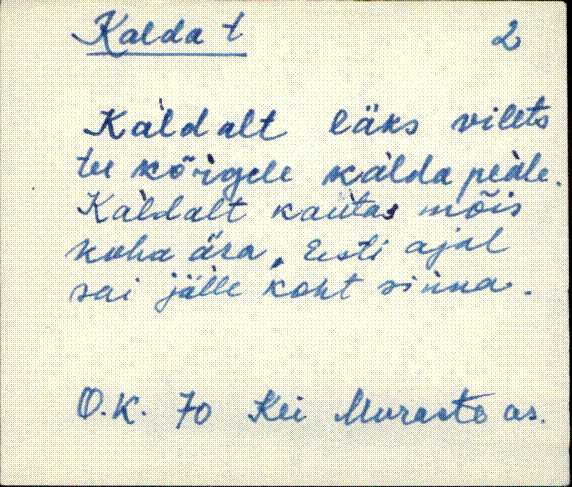 Kalda t 2
Kàldalt läks vilets
tee kõigele kàlda peàle.
Kàldalt kautas mõis
koha ära, Eesti ajal
sai jälle koht sinna.
O.K. 70 Kei Muraste as.